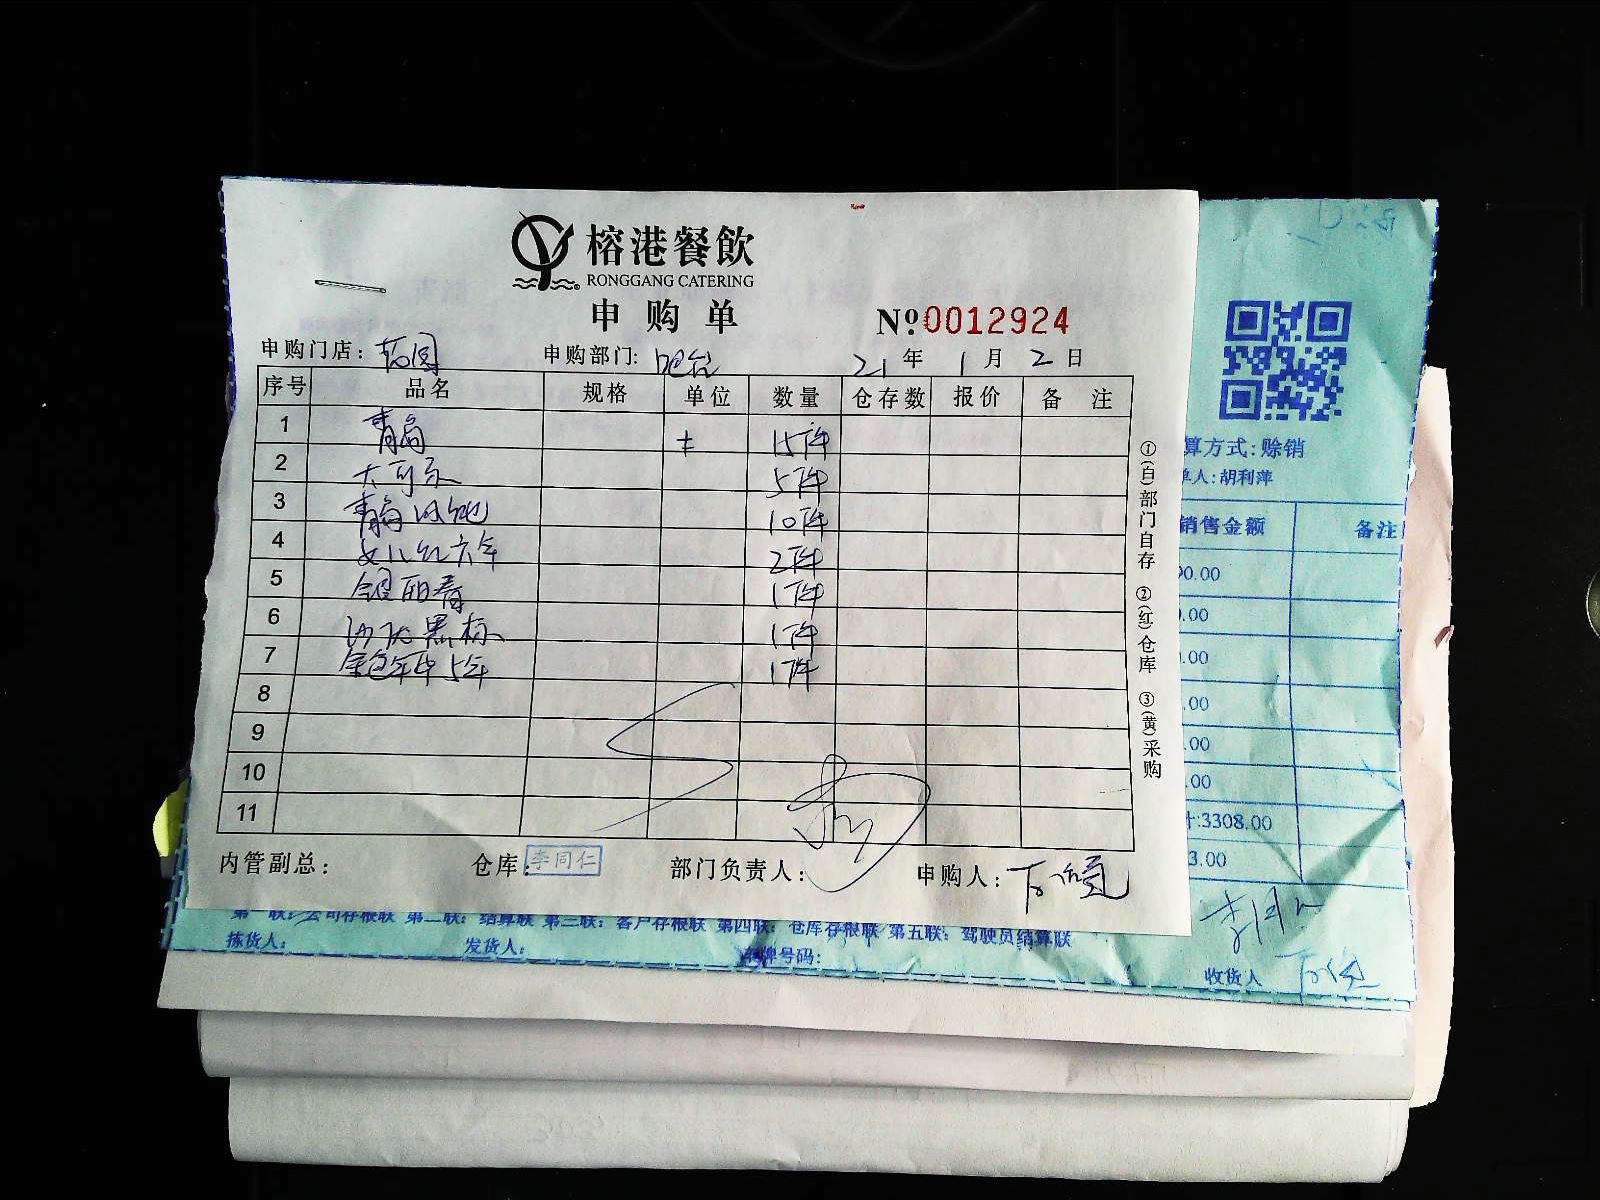 榕港餐飲
RONGGANG CATERING
申购单
№ 0012924
申购门店: 申购部门: 吧台 21年 1月 2日
序号 品名 规格 单位 数量 仓存数 报价 备注
1 青岛 15件
2 大可乐 5件
3 青岛冰纯 10件
4 女儿红六年 2件
5 1件
6 黑标 1件
7 5年 1件
8
9
10
11
①(白)部门自存 ②(红)仓库 ③(黄)采购
内管副总: 仓库: 李同仁 部门负责人: 申购人:
算方式: 赊销
单人: 胡利萍
销售金额 备注
90.00
.00
.00
.00
.00
.00
计:3308.00
3.00
第一联: 公司存根联 第二联: 结算联 第三联: 客户存根联 第四联: 仓库存根联 第五联: 驾驶员结算联
拣货人: 发货人: 车牌号码: 收货人